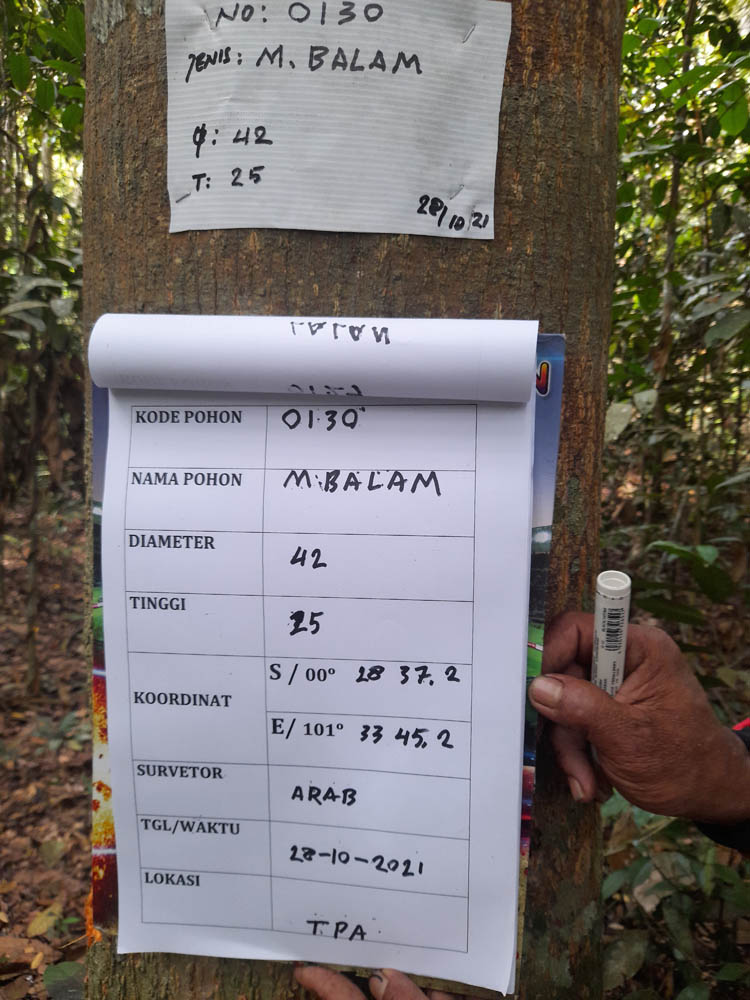 NO: 0130
JENIS: M. BALAM
φ: 42
T: 25
28/10/21
KODE POHON 0130
NAMA POHON M.BALAM
DIAMETER 42
TINGGI 25
KOORDINAT
S / 00° 28 37.2
E/ 101° 33 45.2
SURVETOR ARAB
TGL/WAKTU 28-10-2021
LOKASI TPA